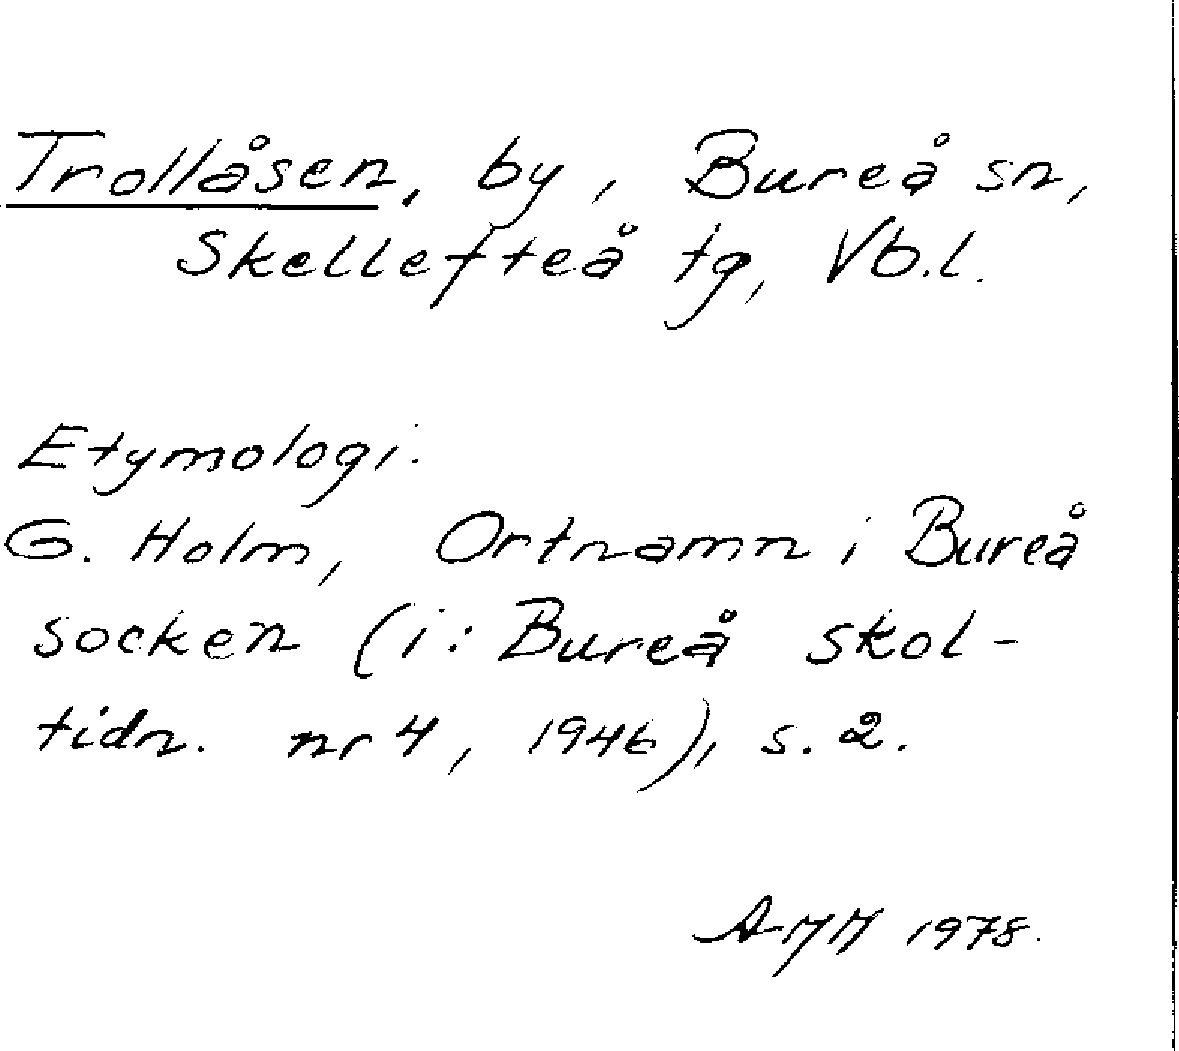 Trollåsen, by, Bureå sn,
Skellefteå tg, Vb.l.
Etymologi.
G. Holm, Ortnamn i Bureå
socken (i: Bureå skol-
tidn. nr 4, 1946), s. 2.
1978.